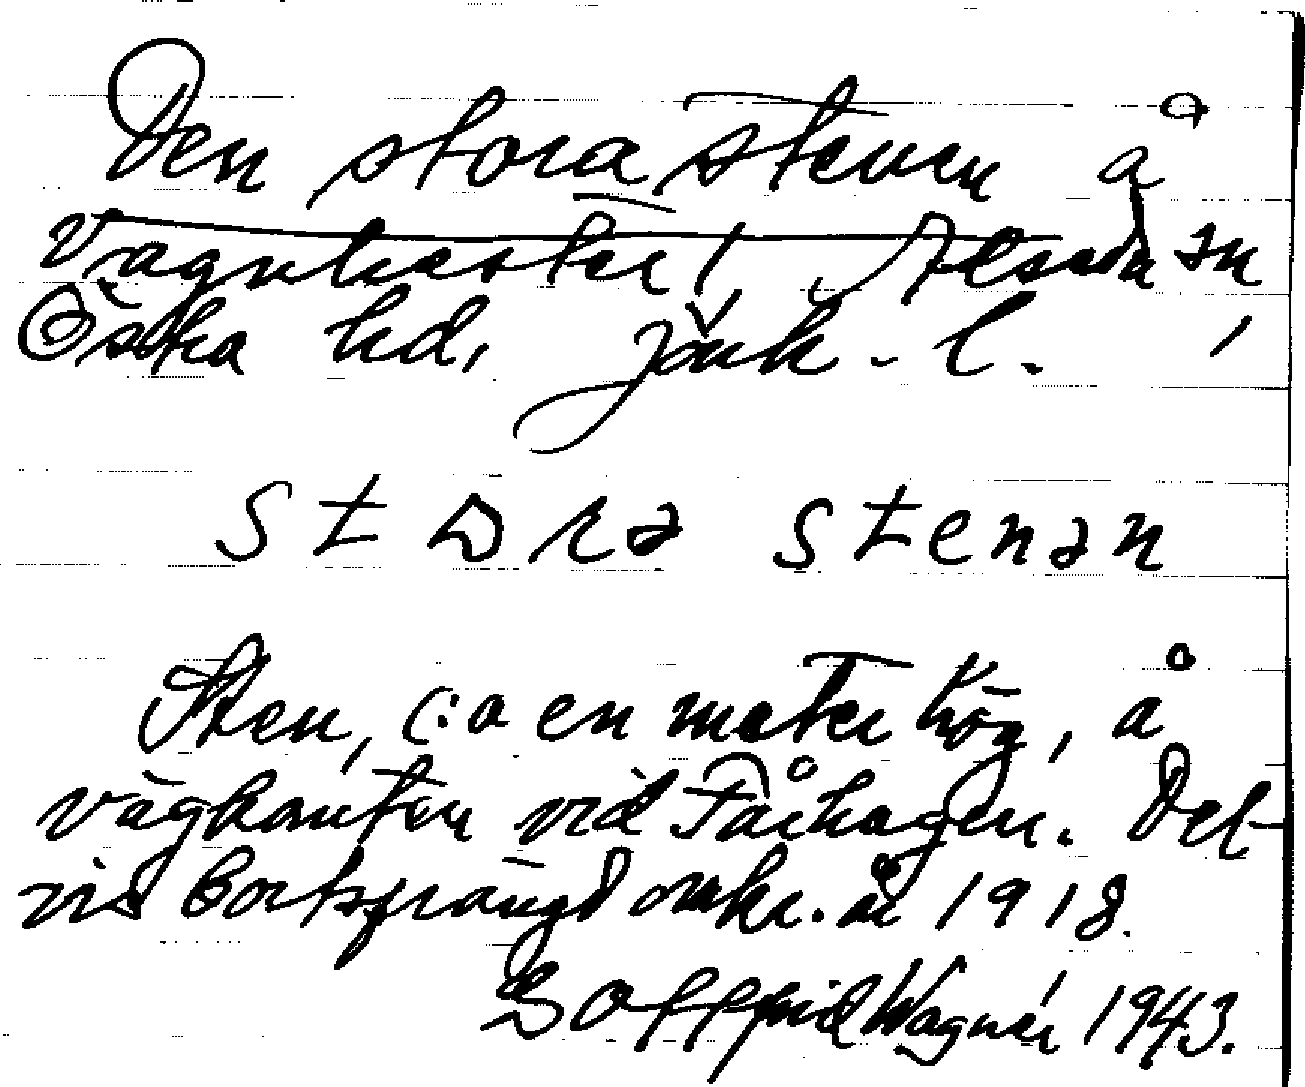 Den stora stenen å
vägrenen, Stenen
Östra hd, Jönk. l.
stora stenan
Sten, c:a en meter hög, å
vägkanten vid Fårhagen. Del-
vis bortsprängd omkr. år 1918.
Gottfrid Wagnér 1943.